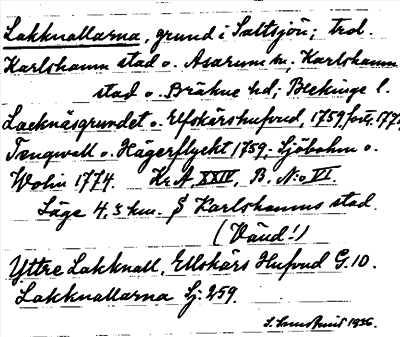 Lakknallarna, grund i Saltsjön; trol.
Karlshamn stad o. Asarum sn, Karlshamn
stad o. Bräkne hd; Blekinge l.
Lacknäsgrundet o. Elfskärshufvud, 1759, forts. 177
Tengwall o. Hägerflycht 1759; Sjöbohm o.
Wolin 1774. Kr. A. XXIV, B, No VI.
Läge 4,5 km. S Karlshamns stad.
(Vänd!)
Yttre Lakknall, Ellskärs Hufvud G. 10.
Lakknallarna Sj. 259.
1936.